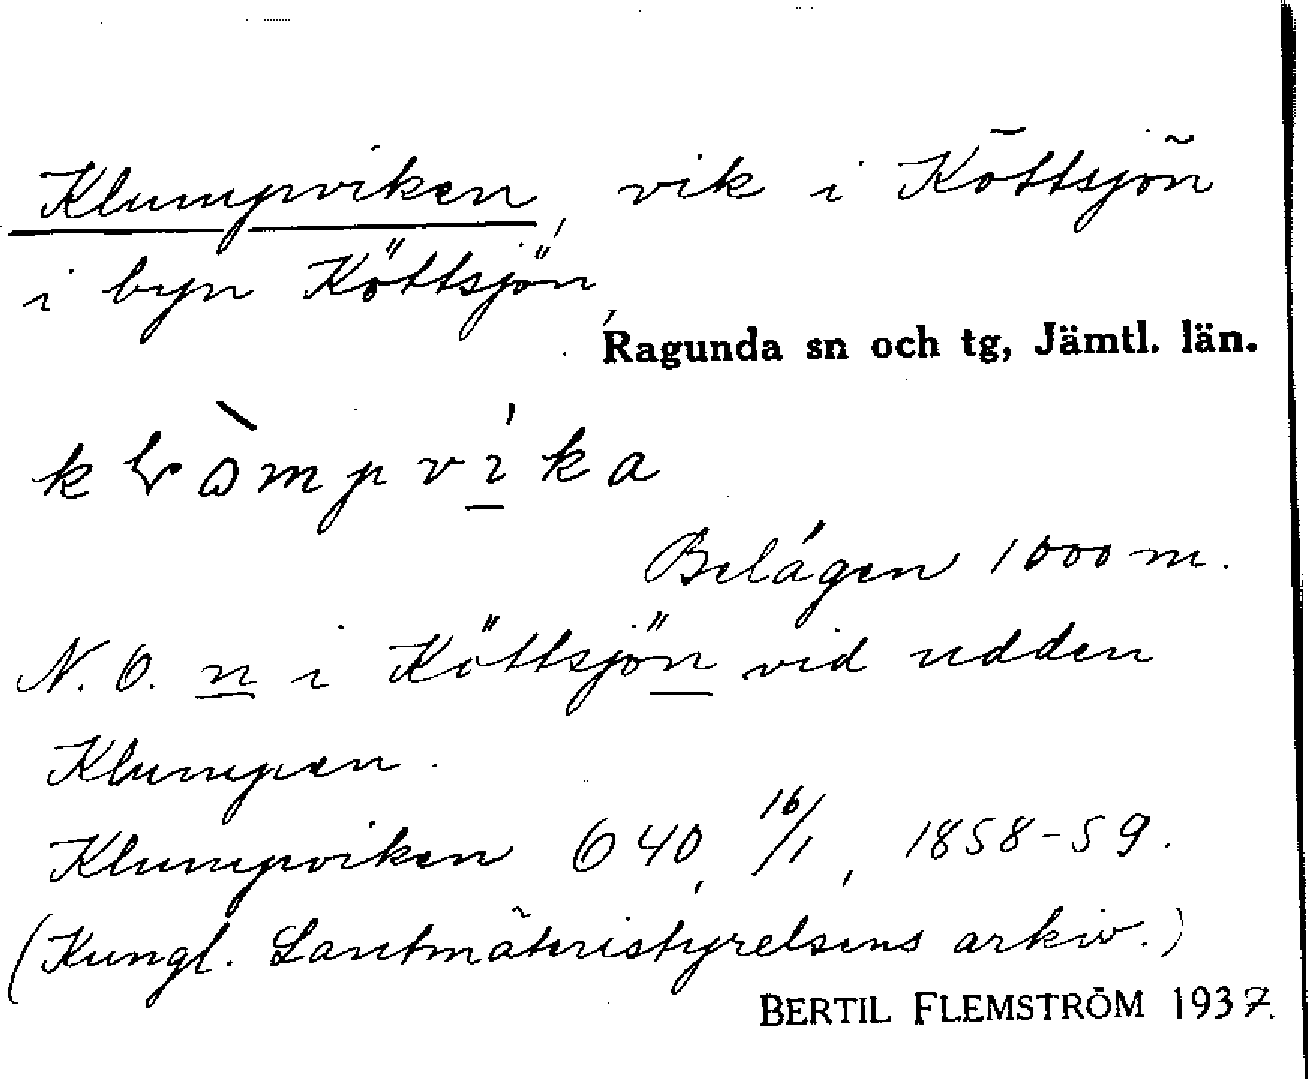 Klumpviken, vik i Köttsjön
i byn Köttsjön,
Ragunda sn och tg, Jämtl. län.
Belägen 1000 m.
N. O. n i Köttsjön vid udden
Klumpen.
Klumpviken 640, 16/1, 1858-59.
(Kungl. Lantmäteristyrelsens arkiv.)
BERTIL FLEMSTRÖM 1937.